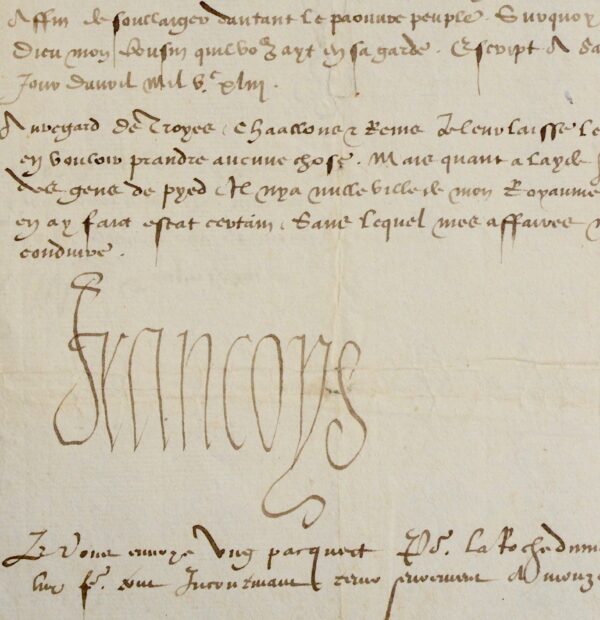 Affin de soullaiger dautant le paouure peuple. Surquoy
Dieu mon Cousin quil vous ayt en sa garde. Escript A
Jour dauril Mil Vc xliii.
Au regard de Troyes, Chaallons & Rems Je leur laisse
en vouloir prandre aucune chose. Mais quant a layde
des gens de pyed, Il nya nulle ville de mon Royaume
en ay faict estat certain, Sans lequel mes affaires
conduire.
Francoys
Je vous envoye ung pacquect